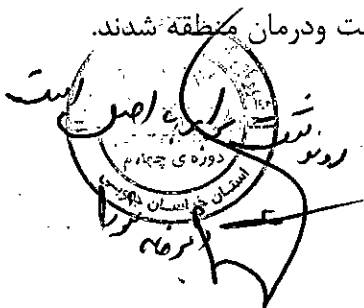 ت ودرمان منطقه شدند.
رونوشت برابر اصل است
دوره ی چهارم
استان خراسان جنوبی